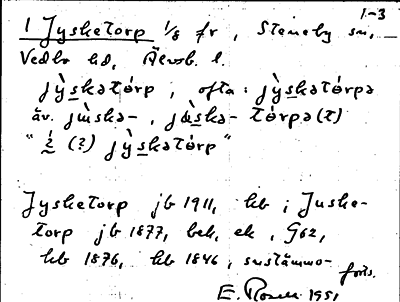 1-3
1 Jysketorp 1/8 fr, Steneby sn,
Vedbo hd, Älvsb. l.
jỳskətórp, ofta: jỳskətórpə
äv. jùskə-, jùskə- tórpə(t)
"i (?) jỳskətórp"
Jysketorp jb 1911, kb; Juske-
torp jb 1877, bek, ek, G62,
kb 1876, kb 1846, sustämmo-
forts.
E. Rosell 1951